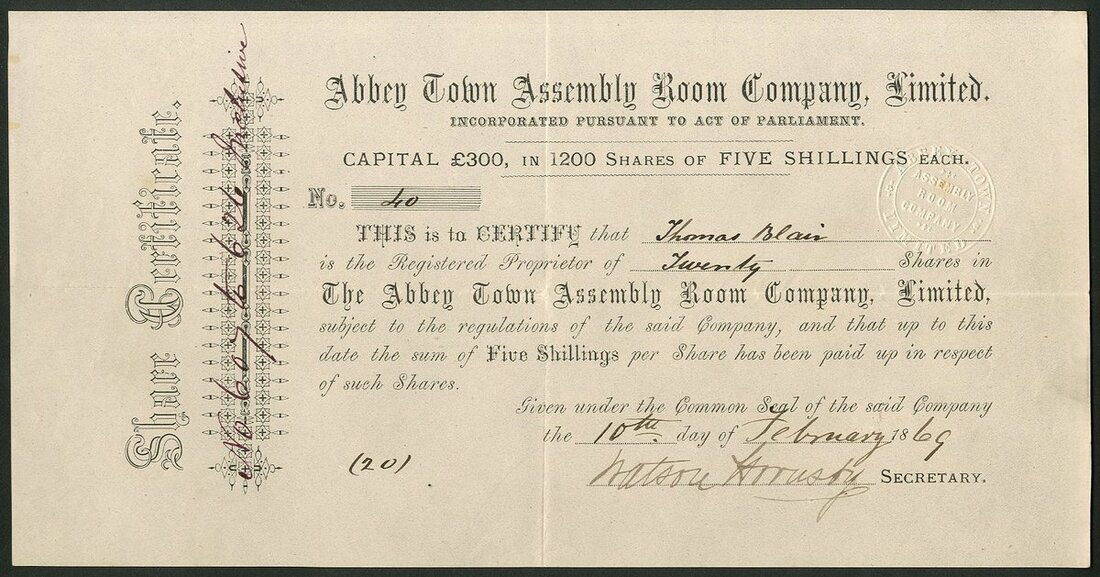 Share Certificate.
No 607 to 626 inclusive
Abbey Town Assembly Room Company, Limited.
INCORPORATED PURSUANT TO ACT OF PARLIAMENT.
CAPITAL £300, IN 1200 SHARES OF FIVE SHILLINGS EACH.
ABBEY TOWN
ASSEMBLY
ROOM
COMPANY
LIMITED
No. 40
THIS is to CERTIFY that Thomas Blair
is the Registered Proprietor of Twenty Shares in
The Abbey Town Assembly Room Company, Limited,
subject to the regulations of the said Company, and that up to this
date the sum of Five Shillings per Share has been paid up in respect
of such Shares.
Given under the Common Seal of the said Company
the 10th day of February 1869
(20)
Watson Hornsby SECRETARY.